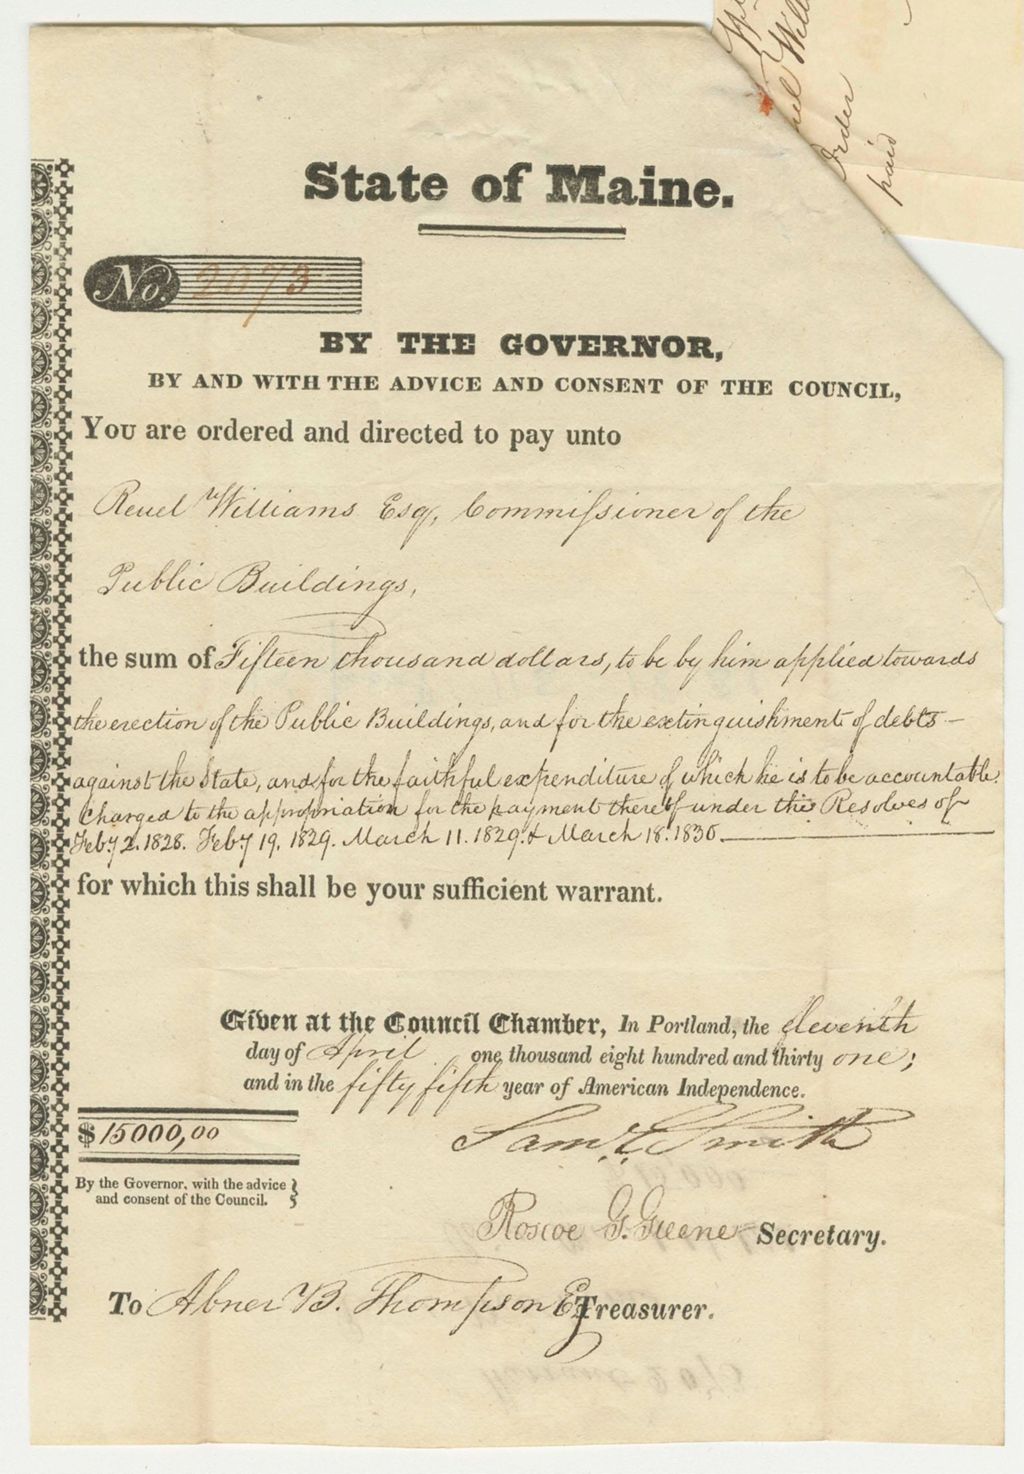 State of Maine.
No. 2073
BY THE GOVERNOR,
BY AND WITH THE ADVICE AND CONSENT OF THE COUNCIL,
You are ordered and directed to pay unto
Reuel Williams Esqr, Commissioner of the
Public Buildings,
the sum of Fifteen thousand dollars, to be by him applied towards
the erection of the Public Buildings, and for the extinguishment of debts—
against the State, and for the faithful expenditure of which he is to be accountable.
Charged to the appropriation for the payment thereof under the Resolves of
Feby 2. 1828. Feby 19. 1829. March 11. 1829. & March 18. 1830.
for which this shall be your sufficient warrant.
Given at the Council Chamber, In Portland, the eleventh
day of April one thousand eight hundred and thirty one;
and in the fifty fifth year of American Independence.
$15000,00
Saml. E. Smith
By the Governor, with the advice
and consent of the Council.
Roscoe G. Greene Secretary.
To Abner B. Thompson Esq Treasurer.
Order
paid